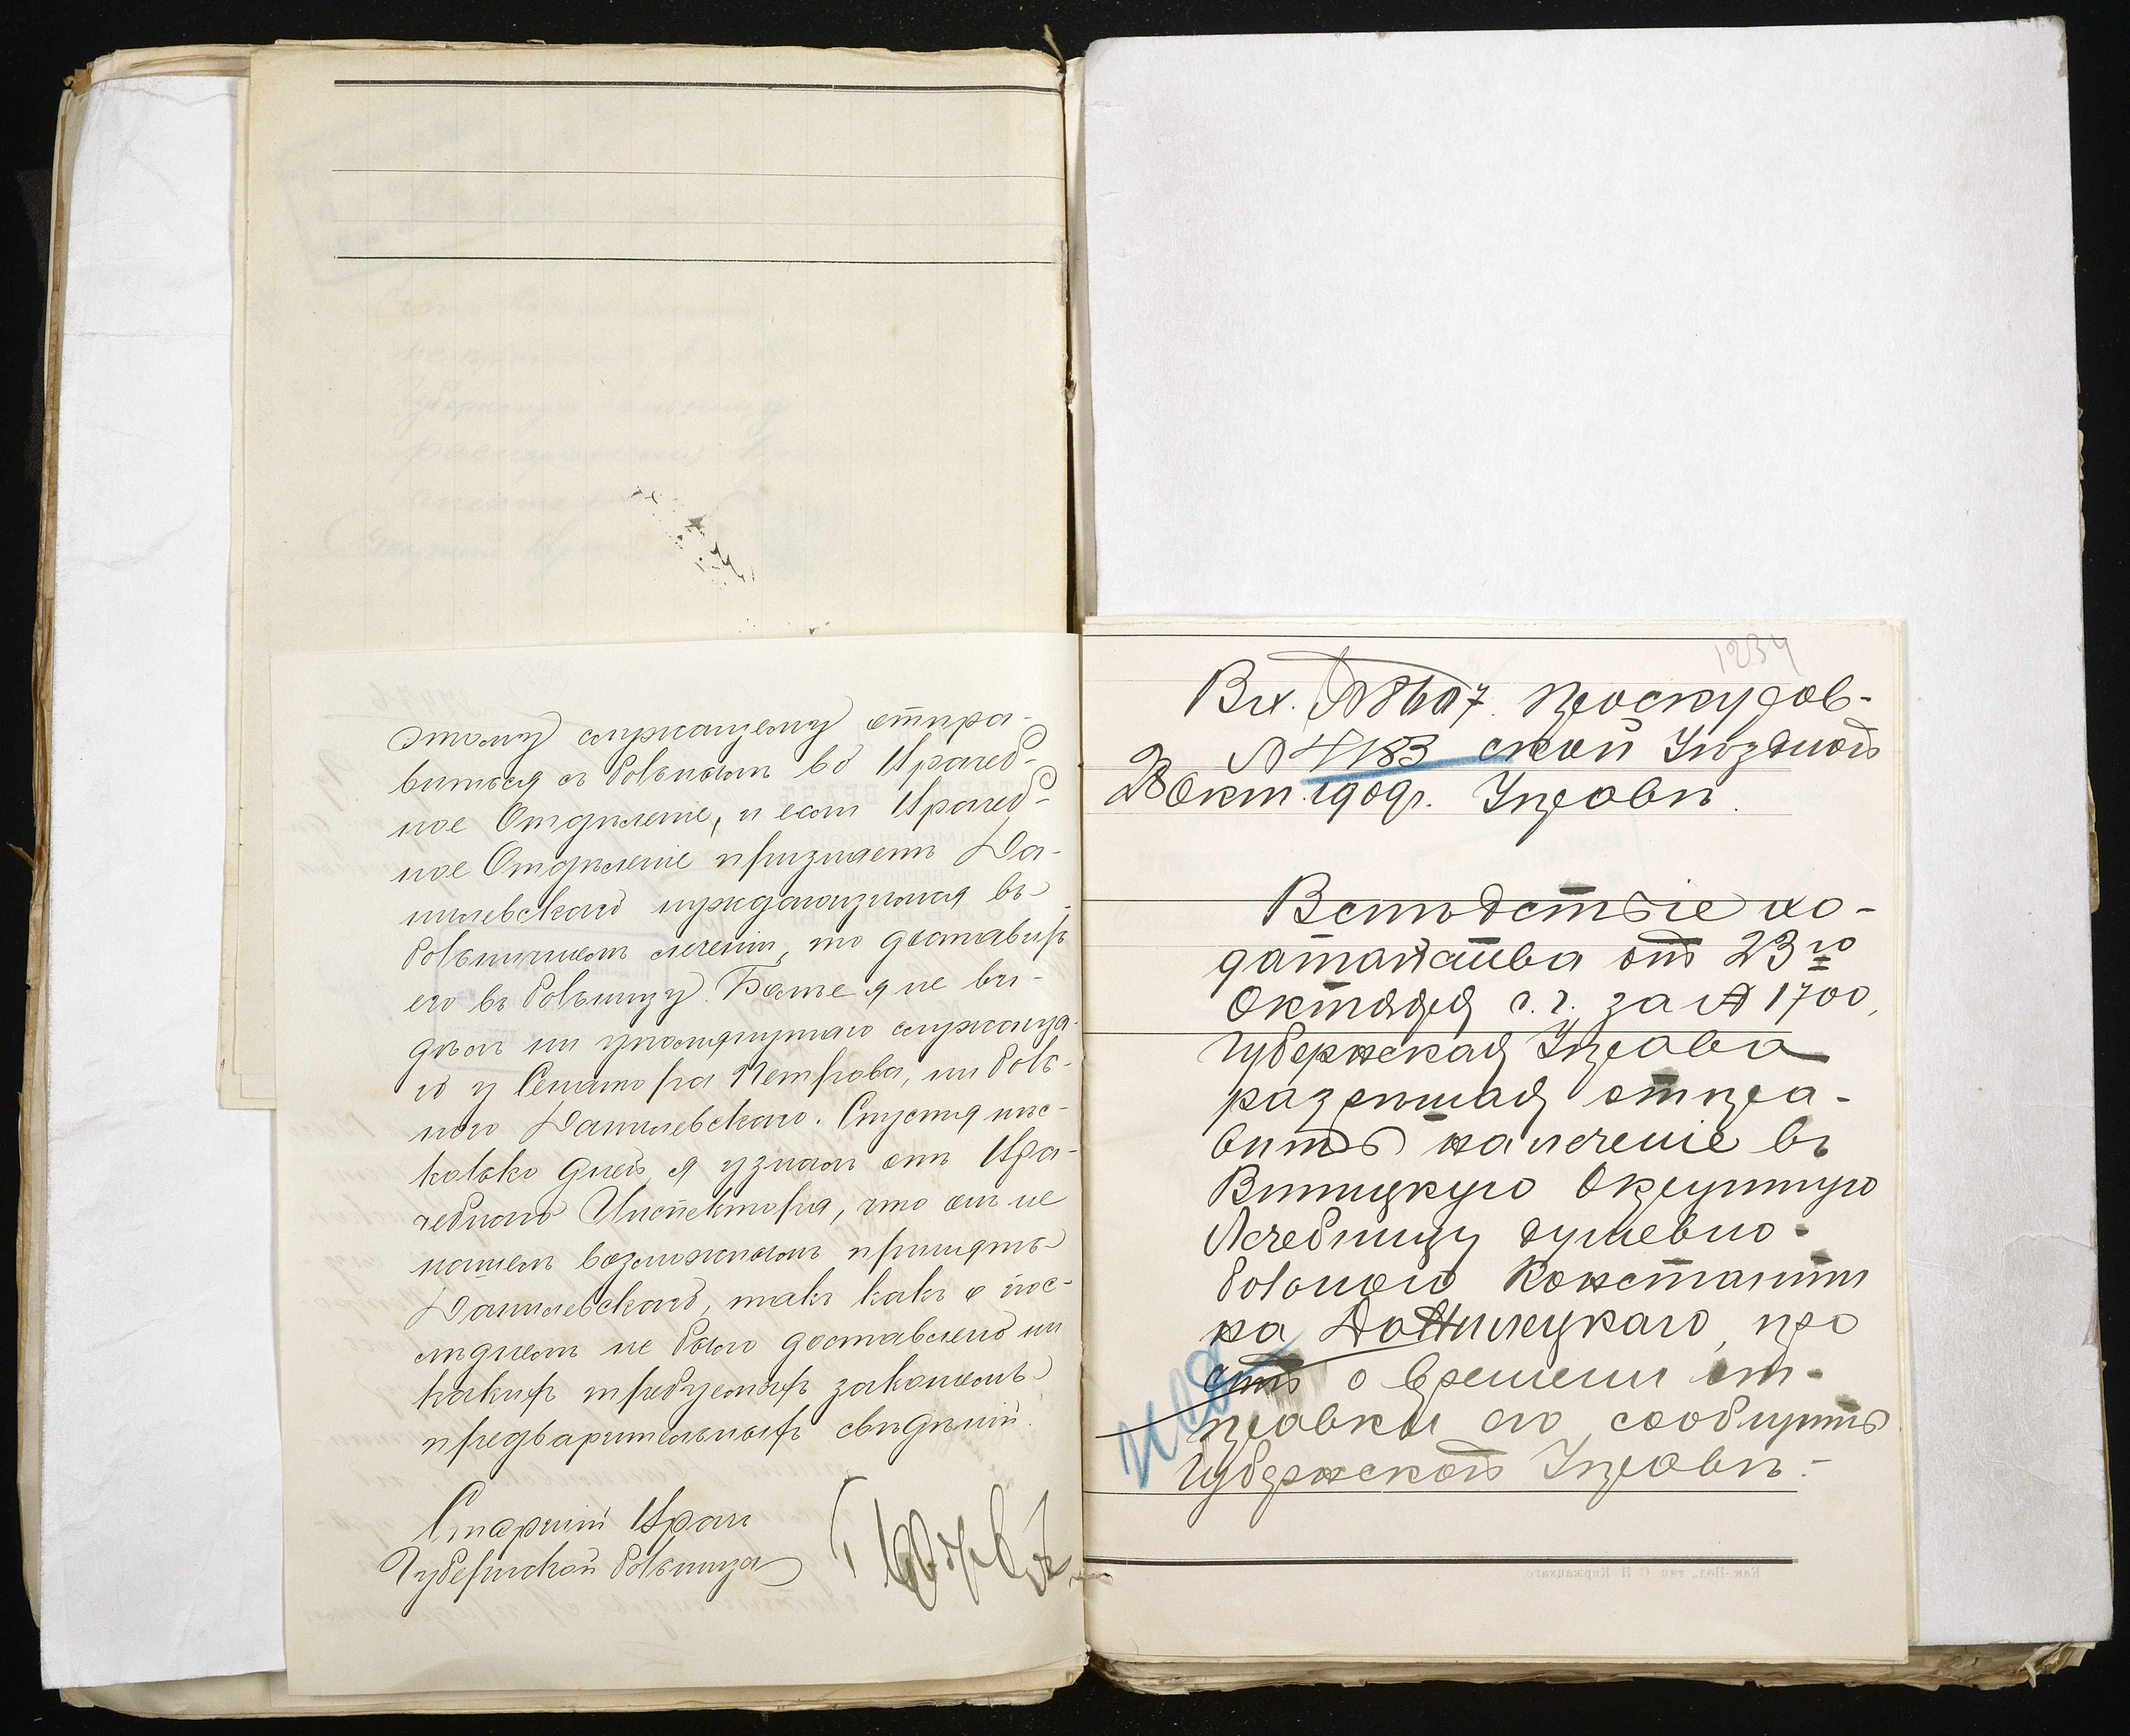 этому служащему отпра-
виться с больным во Врачеб-
ное Отделение, и если Врачеб-
ное Отделение признает Да-
нилевского нуждающимся въ
больничном лечении, то доставить
его въ больницу. Более я не ви-
делъ ни упомянутаго служаща-
го у Сенатора Петрова, ни боль-
ного Данилевскаго. Спустя нѣс-
колько дней я узналъ отъ Вра-
чебнаго Инспектора, что онъ не
нашелъ возможнымъ принять
Данилевскаго, такъ какъ о пос-
лѣднемъ не было доставлено ни
какихъ требуемыхъ закономъ
предварительныхъ свѣдѣній.
Старшій Врачъ
Губернской больницы
1234
Вх. № 8607. Проскуров-
№ 4183 ской Уѣздной
28 Окт. 1909г. Управѣ.
Вслѣдствіе хо-
датайства отъ 23го
Октября с. г. за № 1700,
Губернская Управа
разрѣшая отпра-
вить на леченіе въ
Винницкую Окружную
Лечебницу душевно-
больного Константи
на Данилецкаго, про
ситъ о времени от-
правки его сообщить
Губернской Управѣ.-
Кам.-Под. тип. С. П. Киржацкаго